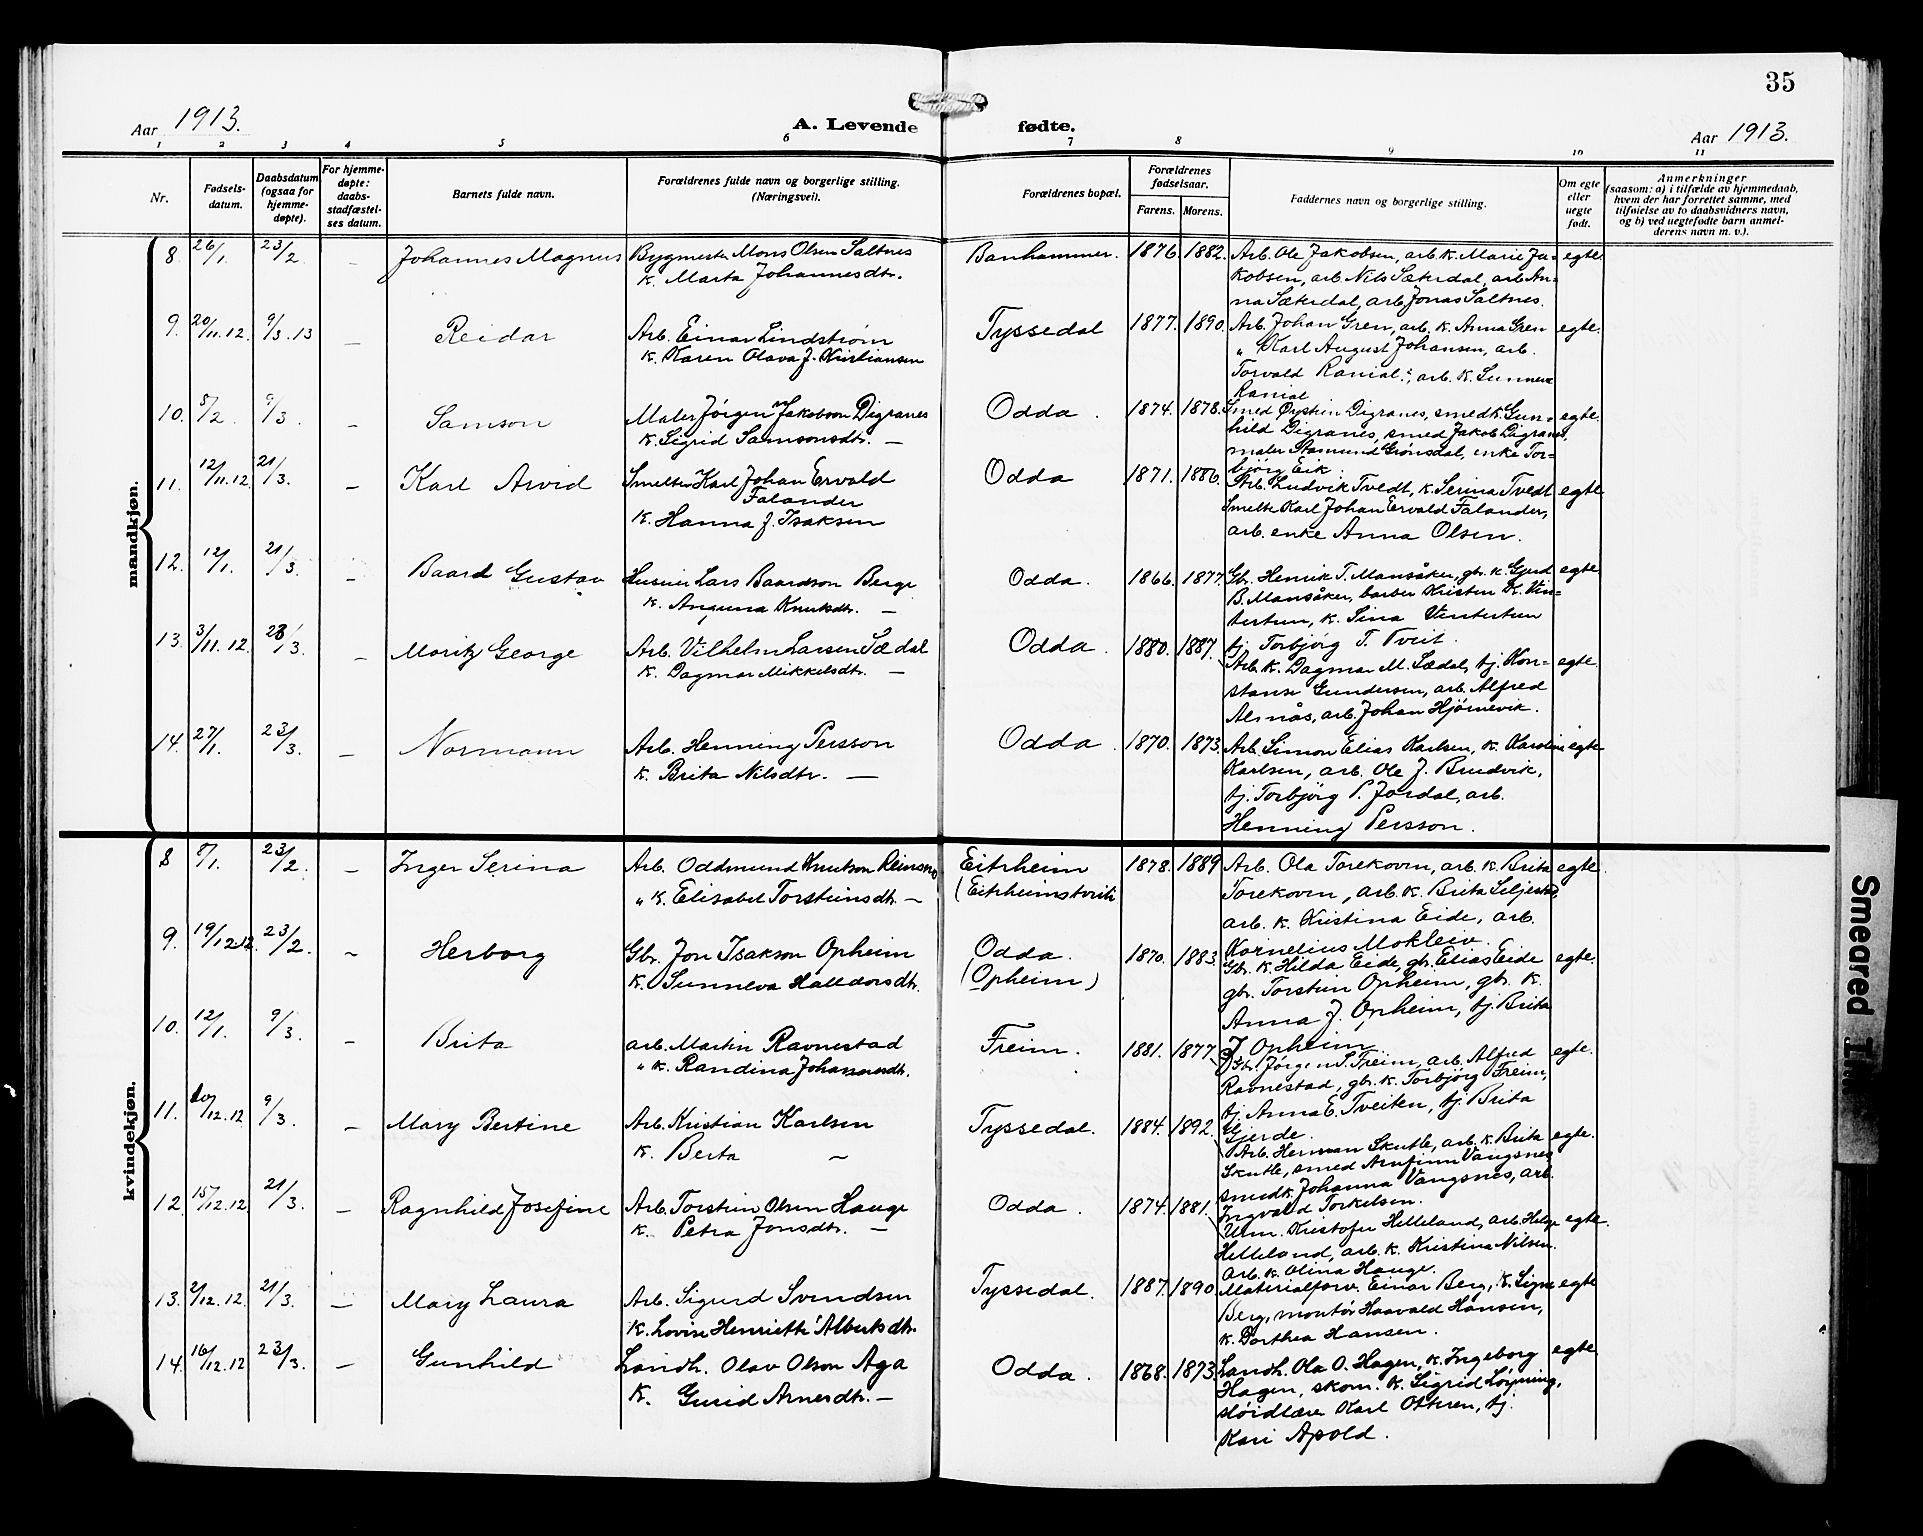 35
Aar 1913.
A. Levende fødte.
Aar 1913.
1 2 3 4 5 6 7 8 9 10 11
Nr.
Fødsels-
datum.
Daabsdatum
(ogsaa for
hjemme-
døpte).
For hjemme-
døpte:
daabs-
stadfæstel-
ses datum.
Barnets fulde navn.
Forældrenes fulde navn og borgerlige stilling.
(Næringsvei).
Forældrenes bopæl.
Forældrenes
fødselsaar.
Farens. Morens.
Faddernes navn og borgerlige stilling.
Om egte
eller
uegte
født.
Anmerkninger
(saasom: a) i tilfælde av hjemmedaab,
hvem der har forrettet samme, med
tilføielse av to daabsvidners navn,
og b) ved uegtefødte barn anmel-
derens navn m. v.).
mandkjøn.
8. 26/1. 23/2 – Johannes Magnus Bygmester Mons Olsen Saltnes Banhammer. 1876. 1882. Arb. Ole Jakobsen, arb. k. Marie Ja- egte
k. Marta Johannesdtr. kobsen, arb. Nils Sæterdal, arb. An-
na Sæterdal, arb. Jonas Saltnes.
9. 20/11.12. 9/3.13 – Reidar Arb. Einar Lindstrøm Tyssedal 1877. 1890. Arb. Johan Gren, arb. k. Anna Gren egte.
k. Karen Olava J. Kristiansen " Karl August Johansen, arb.
Torvald Ranial, arb. k. Sunneva
Ranial
10. 5/2. 9/3. – Samson Maler Jørgen Jakobson Digranes Odda. 1874. 1878. Smed Øystein Digranes, smed k. Gun- egte.
k. Sigrid Samsonsdtr. – hild Digranes, smed Jakob Digranes,
maler Stamund Grønsdal, enke Tor-
bjørg Eik.
11. 12/11.12. 21/3. – Karl Arvid Smelter Karl Johan Ervald Odda 1871. 1886. Arb. Ludvik Tvedt, k. Serina Tvedt egte
Falander Smelte Karl Johan Ervald Falander,
k. Hanna J. Isaksen arb. enke Anna Olsen.
12. 12/1. 21/3. – Baard Gustav Huseier Lars Baardson Berge Odda. 1866. 1877. Gbr. Henrik T. Mansåker, gbr. k. Gjerd egte
k. Anguna Knutsdtr. – B. Mansåker, barber Kristen K. Vin-
tertun, k. Sina Vintertun
tj. Torbjørg T. Tveit.
13. 3/11.12. 23/3. – Moritz George Arb. Vilhelm Larsen Sædal Odda. 1880. 1887. Arb. k. Dagmar M. Sædal, tj. Kon- egte.
k. Dagmar Mikkelsdtr. – stanse Gundersen, arb. Alfred
Alnås, arb. Johan Hjørnevik.
14. 27/1. 23/3. – Normann Arb. Henning Persson Odda. 1870. 1873. Arb. Simon Elias Karlsen, k. Karoline egte
k. Brita Nilsdtr. – Karlsen, arb. Ole J. Brudvik,
tj. Torbjörg P. Jordal, arb.
Henning Persson.
kvindekjøn.
8 8/1. 23/2. – Inger Serina Arb. Oddmund Knutson Reinsnos Eitrheim 1878. 1889 Arb. Ola Torekovn, arb. k. Brita egte.
" k. Elisabet Torsteinsdtr. – (Eitrheimstveit) Torekovn, arb. k. Brita Seljestad,
arb. k. Kristina Eide, arb.
Kornelius Mokleiv.
9. 19/12.12. 23/2. – Herborg Gbr. Jon Isakson Opheim Odda. 1870. 1883. Gbr. k. Hilda Eide, gbr. Elias Eide egte.
k. Sunneva Halldorsdtr. (Opheim) gbr. Torstein Opheim, gbr. k.
Anna J. Opheim, tj. Brita
J. Opheim
10. 12/1. 9/3. – Brita arb. Martin Ravnestad Freim. 1881. 1877. Gbr. Jørgen S. Freim, arb. Alfred egte.
" k. Randina Johannesdtr. Ravnestad, gbr. k. Torbjörg Freim,
tj. Anna E. Tveiten, tj. Brita
Gjerde.
11. 20/12.12 9/3. – Mary Bertine Arb. Kristian Karlsen Tyssedal. 1884. 1892. Arb. Herman Skutle, arb. k. Brita egte.
k. Berta – Skutle, smed Arnfinn Vangsnes
smedk. Johanna Vangsnes, arb.
Ingvald Torkelsen.
12. 15/12.12 21/3. – Ragnhild Josefine Arb. Torstein Olsen Hauge Odda. 1874. 1881. Urm. Kristofer Helleland, arb. Helge egte.
k. Petra Jonsdtr. – Helleland, arb. k. Kristina Nilsen.
arb. k. Olina Hauge.
13. 2/12.12. 21/3. – Mary Laura Arb. Sigurd Svendsen Tyssedal. 1887. 1890 Materialforv. Einar Berg, k. Signe egte
k. Lovise Henriette Albertsdtr. Berg, montør Haavald Hansen,
k. Dorthea Hansen.
14. 16/12.12 23/3. – Gunhild Landh. Olav Olson Aga Odda. 1868. 1873. Landh. Ola O. Hagen, k. Ingeborg egte
k. Gurid Arnesdtr. – Hagen, skom. k. Sigrid Løyning,
sløidlærer Karl Ottesen, tj.
Kari Apold.
Smeared